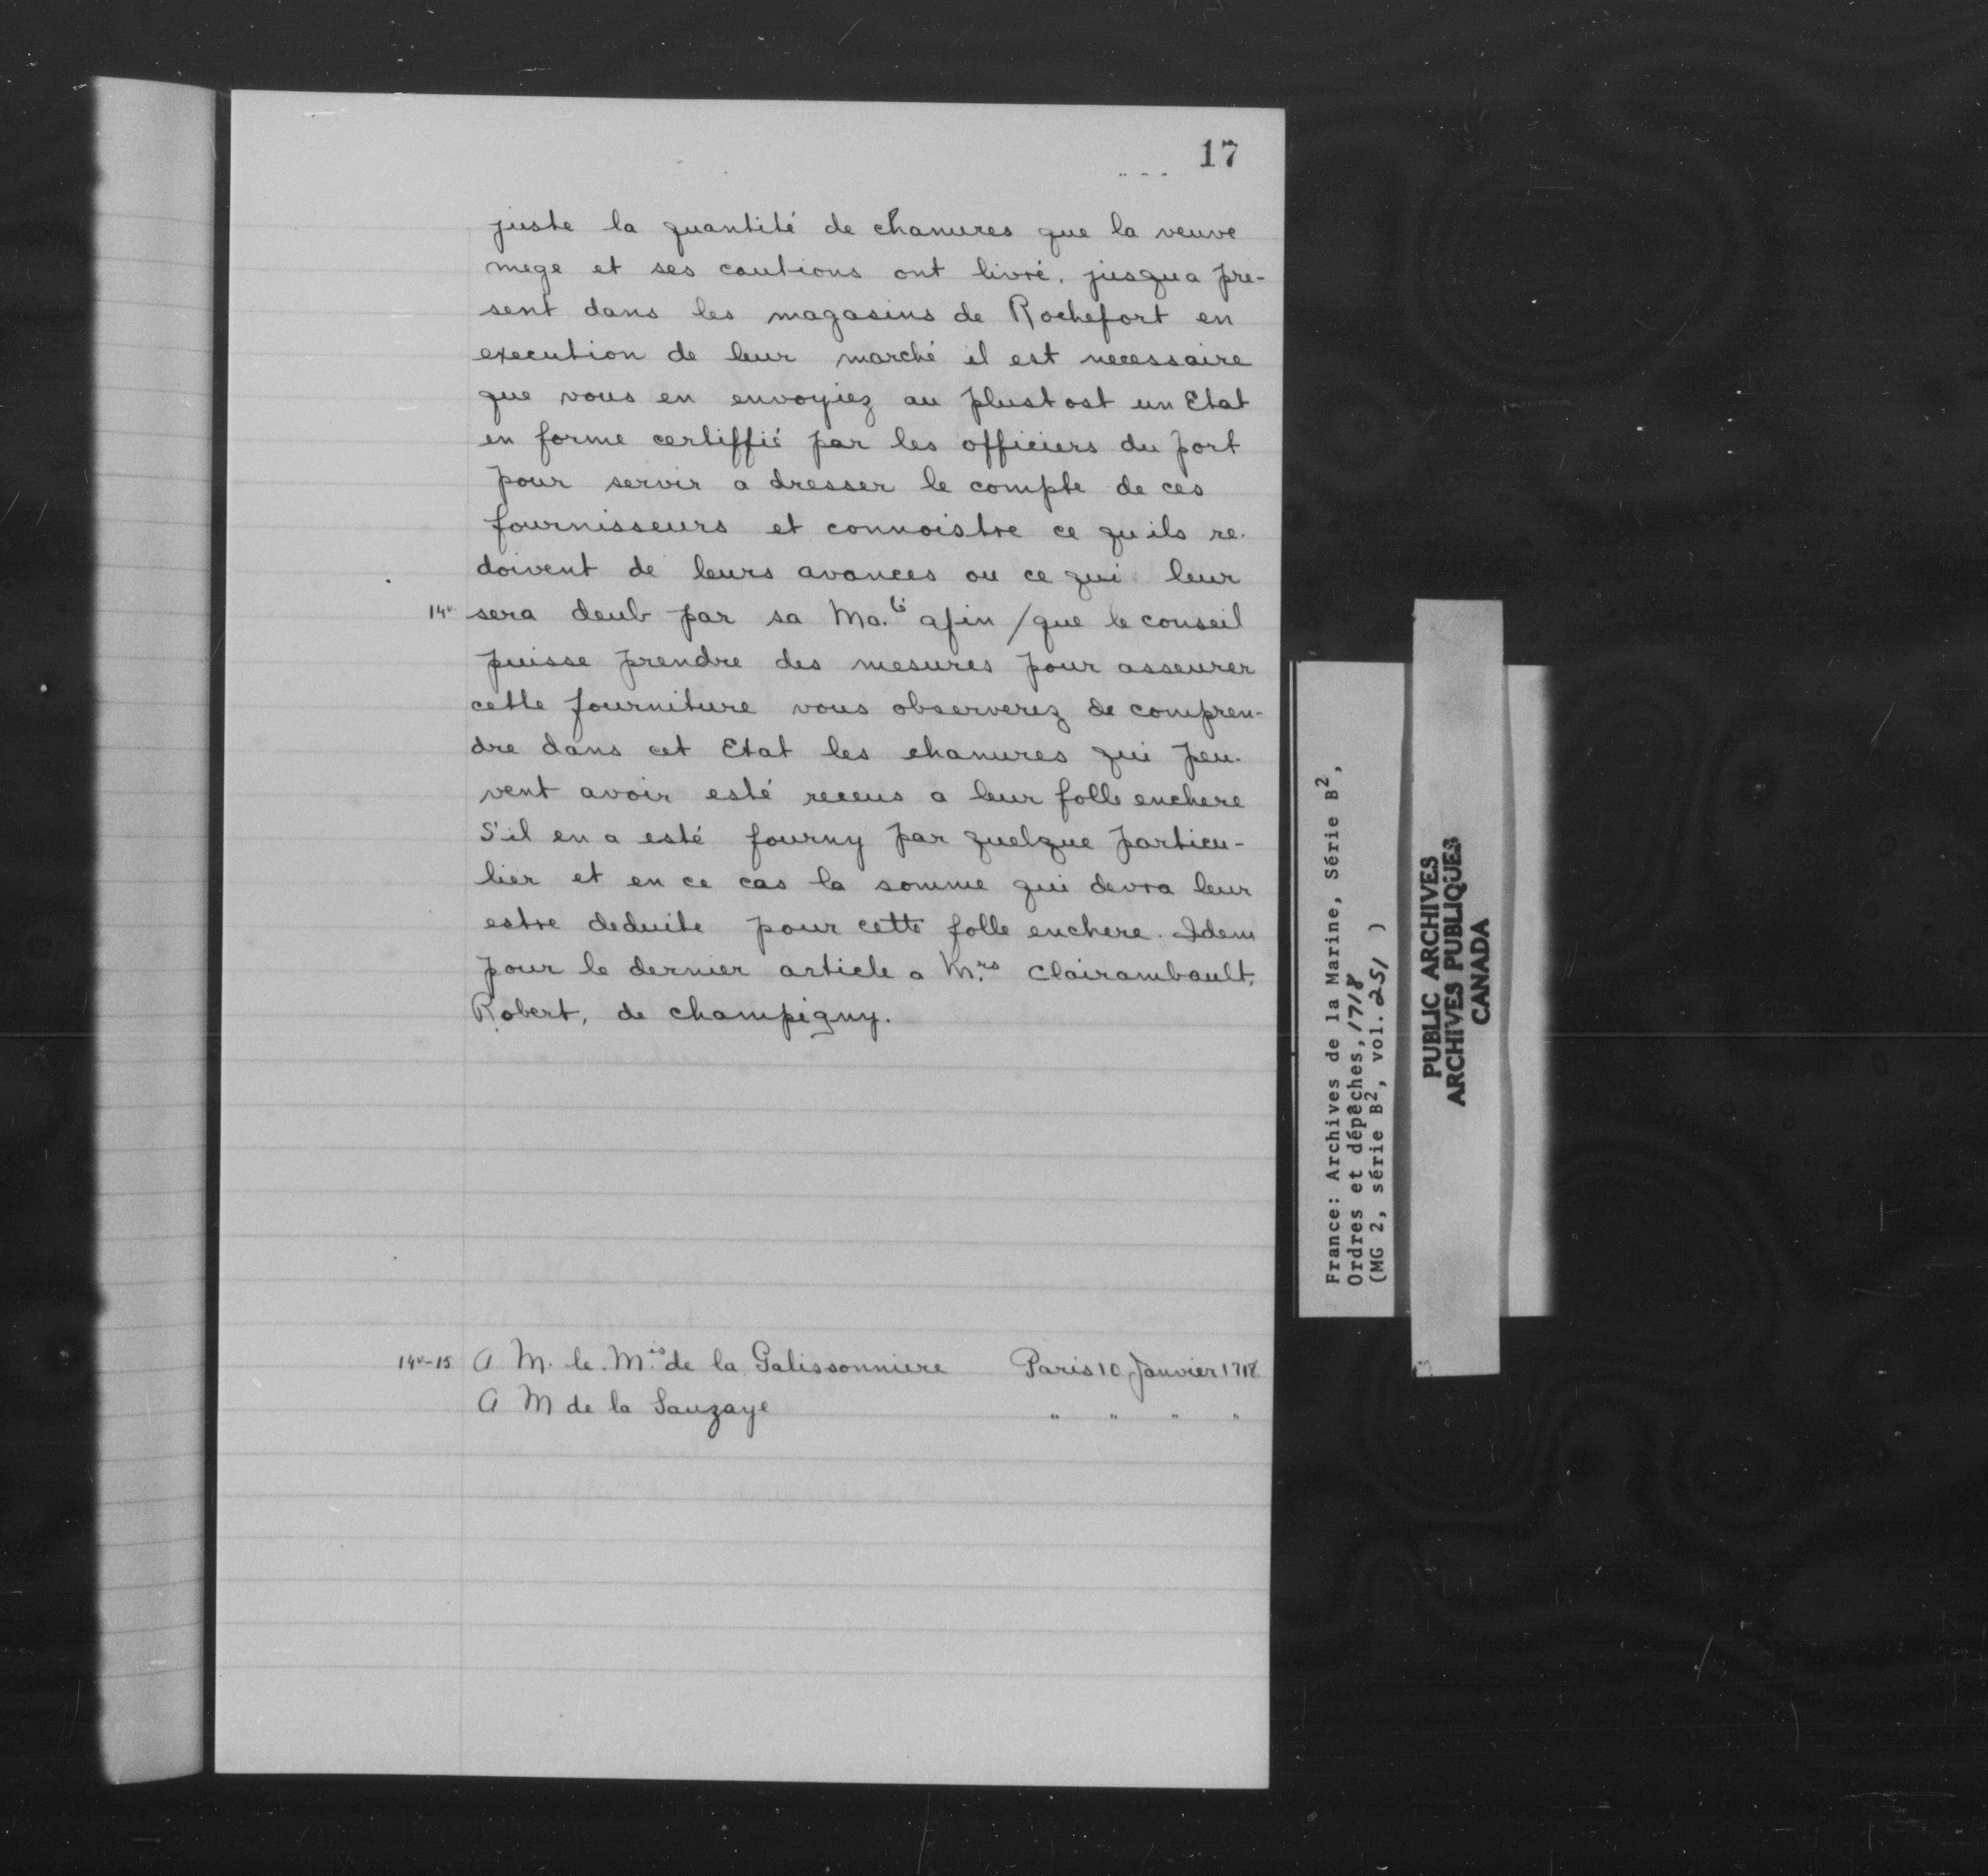 17
juste la quantité de chanvres que la veuve
mege et ses cautions ont livré, jusqua pre-
sent dans les magasins de Rochefort en
execution de leur marché il est necessaire
que vous en envoyiez au plustost un Etat
en forme certiffié par les officiers du port
pour servir a dresser le compte de ces
fournisseurs et connoistre ce quils re-
doivent de leurs avances ou ce qui leur
14v sera deub par sa Ma.té afin / que le conseil
puisse prendre des mesures pour asseurer
cette fourniture vous observerez de compren-
dre dans cet Etat les chanvres qui peu-
vent avoir esté receus a leur folle enchere
S'il en a esté fourny par quelque particu-
lier et en ce cas la somme qui devra leur
estre deduite pour cette folle enchere. Idem
pour le dernier article a M.rs Clairambault,
Robert, de champigny.
14v-15 A M. le M.is de la Galissonniere Paris 10 Janvier 1718
A M de la Sauzaye " " " "
France: Archives de la Marine, Série B2,
Ordres et dépêches, 1718
(MG 2, série B2, vol. 251 )
PUBLIC ARCHIVES
ARCHIVES PUBLIQUES
CANADA